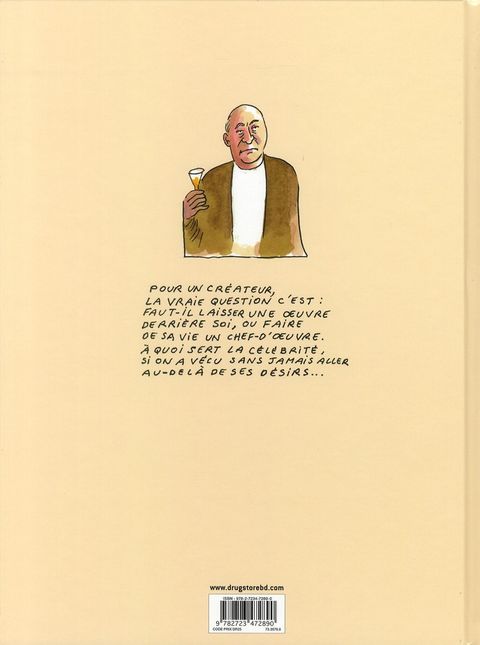 POUR UN CRÉATEUR,
LA VRAIE QUESTION C'EST :
FAUT-IL LAISSER UNE ŒUVRE
DERRIÈRE SOI, OU FAIRE
DE SA VIE UN CHEF-D'ŒUVRE.
À QUOI SERT LA CÉLÉBRITÉ,
SI ON A VÉCU SANS JAMAIS ALLER
AU-DELÀ DE SES DÉSIRS...
www.drugstorebd.com
ISBN : 978-2-7234-7289-0
9 782723 472890
CODE PRIX DR25